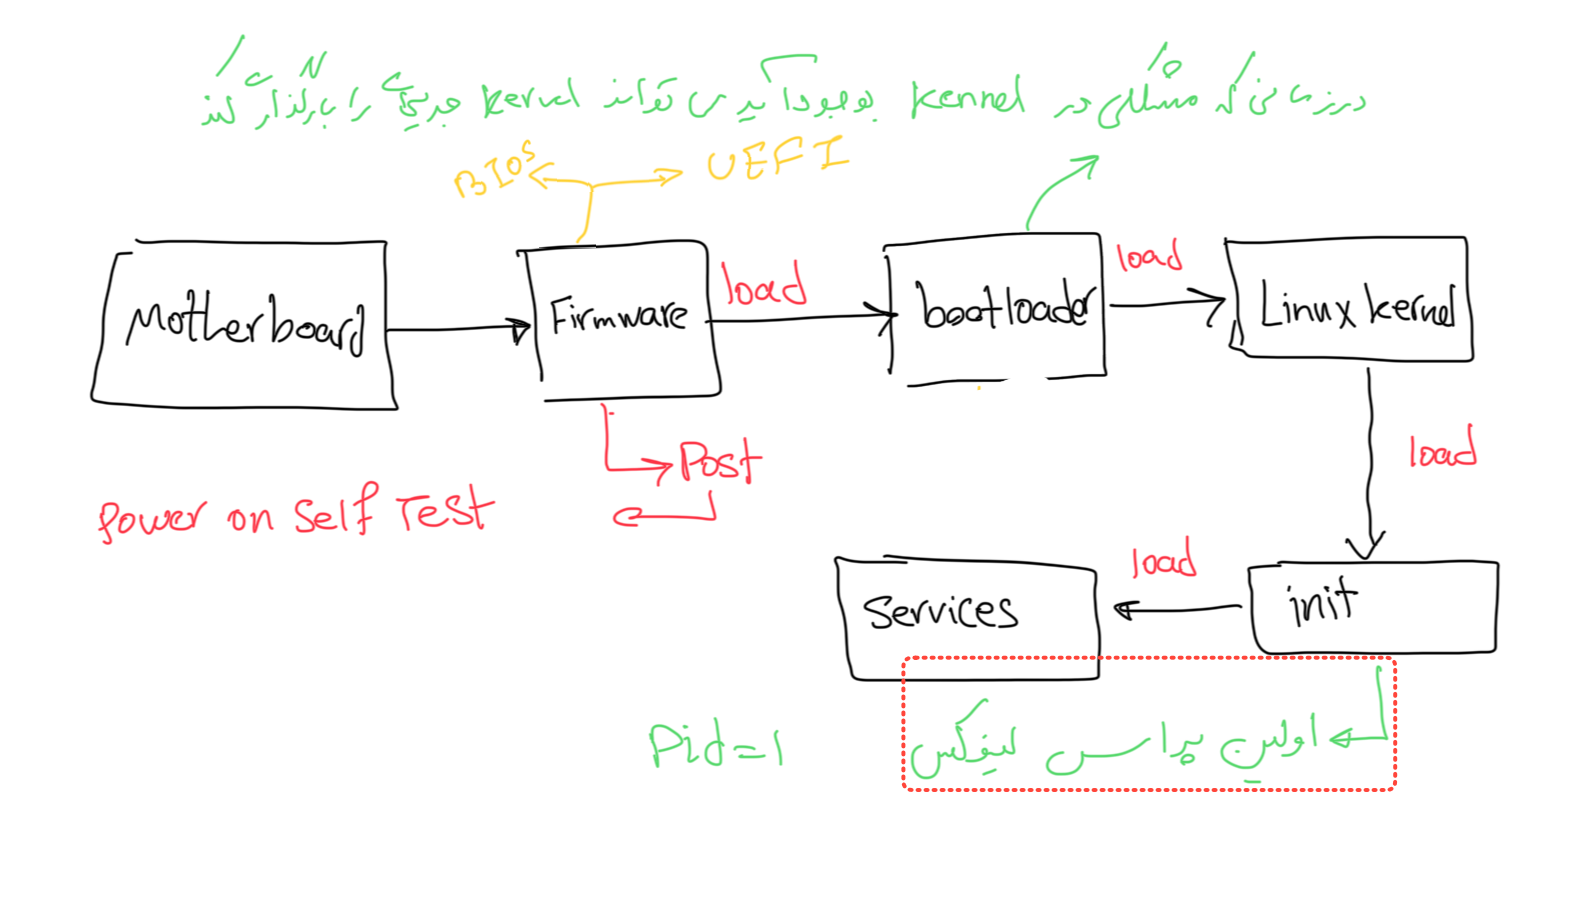 در زمانی که مشکلی در kennel بوجود آید می تواند kervel جدیدی را بارگذاری کند
BIOS UEFI
Motherboard Firmware load bootloader load Linux kernel
Post load
Power on Self Test
Services load init
Pid=1 اولین پراسس لینوکس